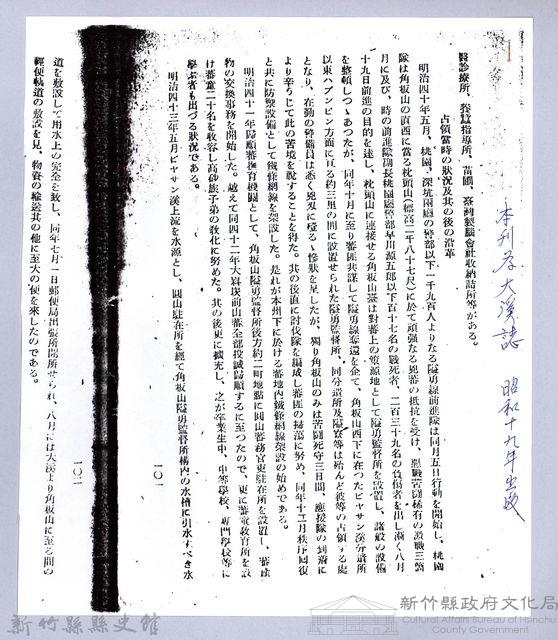 醫診療所、養蠶指導所、苗圃、臺灣製腦會社收納詰所等がある。
占領當時の狀況及其の後の沿革
明治四十年五月、桃園、深坑兩廳の警部以下一千九百人よりなる隘勇線前進隊は同月五日行動を開始し、桃園
隊は角板山の眞西に當る枕頭山(標高二千八十七尺)に於て頑强なる兇蕃の抵抗を受け、惡戰苦鬪稀有の激戰三箇
月に及び、時の前進隊副長桃園廳警部早川源五郎以下百十七名の戰死者、二百三十九名の負傷者を出し漸く八月
十九日前進の目的を達し、枕頭山に連接せる角板山臺は對蕃上の策源地として隘勇監督所を設置し、諸般の設備
を整頓しつゝあつたが、同年十月に至り蕃匪共謀して隘勇線奪還を企て、角板山西下に在つたピヤサン溪分遣所
以東ハブンピンの方面に亙る約三里の間に設置せられた隘勇監督所、同分遣所及隘寮等は殆んど彼等の占領する處
となり、在勤の警備員は悉く兇刄に殪るゝ慘狀を呈したが、獨り角板山のみは苦鬪死守三日間、應援隊の到着に
より辛うじて此の苦境を脫することを得た。其の後直に討伐隊を編成し蕃匪の掃蕩に努め、同年十二月秩序回復
と共に防禦設備として鐵條網線を架設した。是れが本州下に於ける蕃地內鐵條網線架設の始めである。
明治四十一年歸順蕃撫育機關として、角板山隘勇監督所後方約二町地點に圓山蕃務官吏駐在所を設置し、蕃產
物の交換事務を開始した。越えて同四十二年大嵙崁前山蕃全部投誠歸順するに至つたので、更に蕃童敎育所を設
け蕃童二十名を收容し高砂族子弟の敎化に努めた。其の後更に擴充し、之が卒業生中、中等學校、專門學校等に
學ぶ者も出づる狀況である。
明治四十三年五月ピヤサン溪上流を水源とし、圓山駐在所を經て角板山隘勇監督所構內の水槽に引水すべき水
一〇一
道を敷設して用水上の完全を致し、同年七月一日郵便局出張所開所せられ、八月には大溪より角板山に至る間の
輕便軌道の敷設を見、物資の輸送其の他に至大の便を來したのである。
一〇二
本刊存大溪誌 昭和十九年出版
新竹縣縣史館
新竹縣政府文化局
Cultural Affairs Bureau of Hsinchu County Government